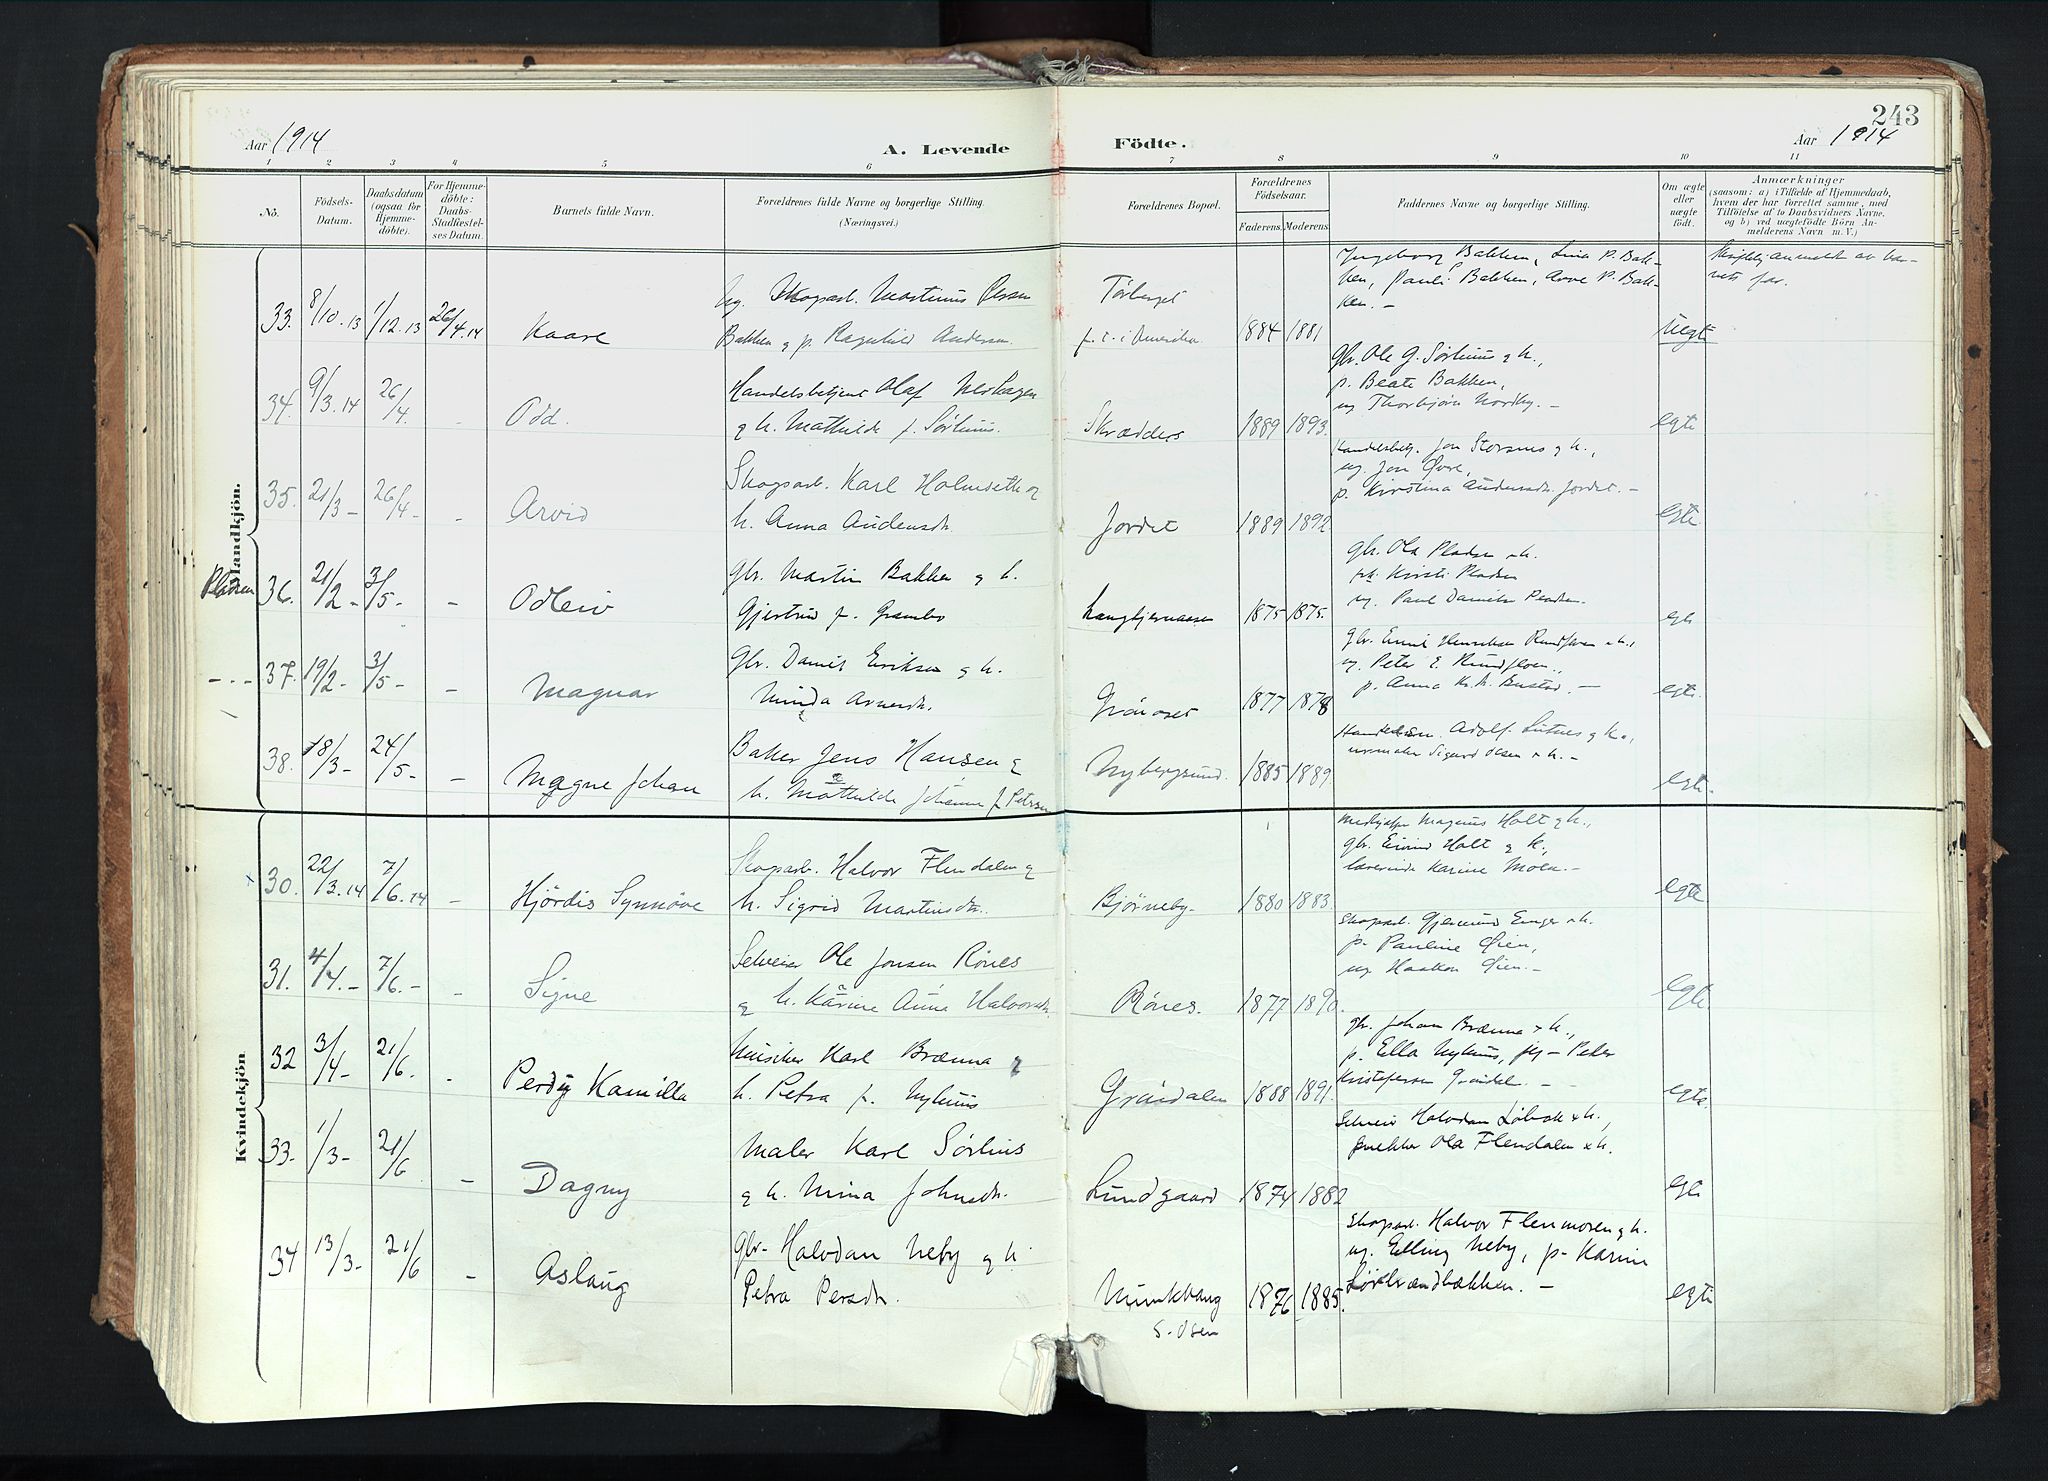 243
Aar 1914
A. Levende Födte.
Aar 1914
1 2 3 4 5 6 7 8 9 10 11
No.
Födsels-Datum.
Daabsdatum (ogsaa for Hjemme-döbte).
For Hjemme-döbte: Daabs-Stadfæstel-ses Datum.
Barnets fulde Navn.
Forældrenes fulde Navne og borgerlige Stilling.
(Næringsvei.)
Forældrenes Bopæl.
Forældrenes Födselsaar.
Faderens. Moderens.
Faddernes Navne og borgerlige Stilling.
Om ægte eller uægte födt.
Anmærkninger
(saasom: a) i Tilfælde af Hjemmedaab,
hvem der har forrettet samme, med
Tilföielse af to Daabsvidners Navne,
og b) ved uægtefödte Börn An-
melderens Navn m. V.)
Mandkjön.
33. 8/10.13 1/12.13 26/4.14 Kaare
ug. Skogsarb. Martinus Persen
Bakken & p. Ragnhild Andersen.
Törberget
f. t. i Amerika 1884 1881
Ingeborg Bakken, Lina P. Bak-
ken, Paul P. Bakken, Arve P. Bak-
ken. -
Uegte
Skriftlig anmeldt av bar-
nets far.
34. 9/3.14 26/4. - Odd.
Handelsbetjent Olaf Nerhagen
& h. Mathilde f. Sørhuus.
Skrædders 1889 1893.
Gbr. Ole G. Sörhuus & h.,
p. Beate Bakken,
ug. Thorbjørn Nordby. -
egte
35. 21/3 - 26/4 - - Arvid
Skogsarb. Karl Holmseth &
h. Anna Audensdr.
Jordet 1889 1892
Handelsbetj. Jon Storsnes & h.,
ug. Jon Øvre,
p. Kirstina Audensdr. Jordet. -
egte
Pladsen 36. 21/2 - 3/5 - - Odleiv
Gbr. Martin Bakken & h.
Gjertrud f. Grambo
Langtjernaasen 1875 1875.
Gbr. Ola Pladsen & h.
Kirsti Pladsen
ug. Paul Danielsen Pladsen.
egte
- . - 37. 19/2 - 3/5 - - Magnar
Gbr. Daniel Eriksen & h.
Minda Arnesdr.
Grönoset 1877 1878
Gbr. Emil Henriksen Rundfloen & h.,
ug. Peter E. Rundfloen,
p. Anna K. H. Bustad. -
egte.
38. 18/3 - 24/5 - - Magne Johan
Baker Jens Hansen &
h. Mathilde Johanne f. Petersen
Nybergsund. 1885 1889
Adolf Lutnes & h.,
urmaker Sigurd Olsen & h. -
egte.
Kvindekjön.
30. 22/3.14 7/6.14 - Hjördis Synnöve
Skogsarb. Halvor Flendalen &
h. Sigrid Martinsdr.
Bjørneby. 1880 1883.
Magnus Holt & h.,
gbr. Eivind Holt & h.,
lærerinde Karine Moen. -
egte
31. 4/4. - 7/6. - - Signe
Selveier Ole Jonsen Rönes
& h. Karine Anne Halvorsdr.
Rönes. 1877 1890.
Skogsarb. Gjermund Enger & h.
p. Pauline Øien,
ug. Haakon Øien. -
egte.
32 3/4 - 21/6. - Perdy Kamilla
Musiker Karl Brænna &
h. Petra f. Nyhuus
Gröndalen 1888 1891.
Gbr. Johan Brænna & h.,
p. Ella Nyhuus, Peder
Kristofersen Gröndal. -
egte.
33. 1/3 - 21/6 - Dagny
Maler Karl Sørhus
& h. Mina Johnsdr.
Lundgaard 1874 1882
Selveier Halvdan Löbak & h.,
snekker Ola Flendalen & h.
egte
34 13/3 - 21/6 - Aslaug
Gbr. Halvdan Neby & h.
Petra Persdr.
Munkbæng 1876 1885.
S. Osen
Skogsarb. Halvor Flenmoen & h.
ug. Elling Neby, p. Karine
Sörstrandbækken. -
egte